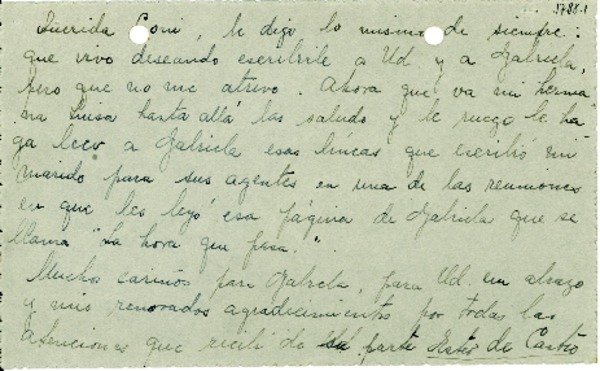 3788-1
Querida Coni, le digo lo mismo de siempre:
que vivo deseando escribirle a Ud. y a Gabriela,
pero que no me atrevo. Ahora que va mi herma
na Luisa hasta allá las saludo y le ruego le ha
ga leer a Gabriela esas líneas que escribió mi
marido para sus agentes en una de las reuniones
en que les leyó esa página de Gabriela que se
llama "La hora que pasa".
Muchos cariños para Gabriela, para Ud. un abrazo
y mis renovados agradecimientos por todas las
atenciones que recibí de su parte Ester de Castro